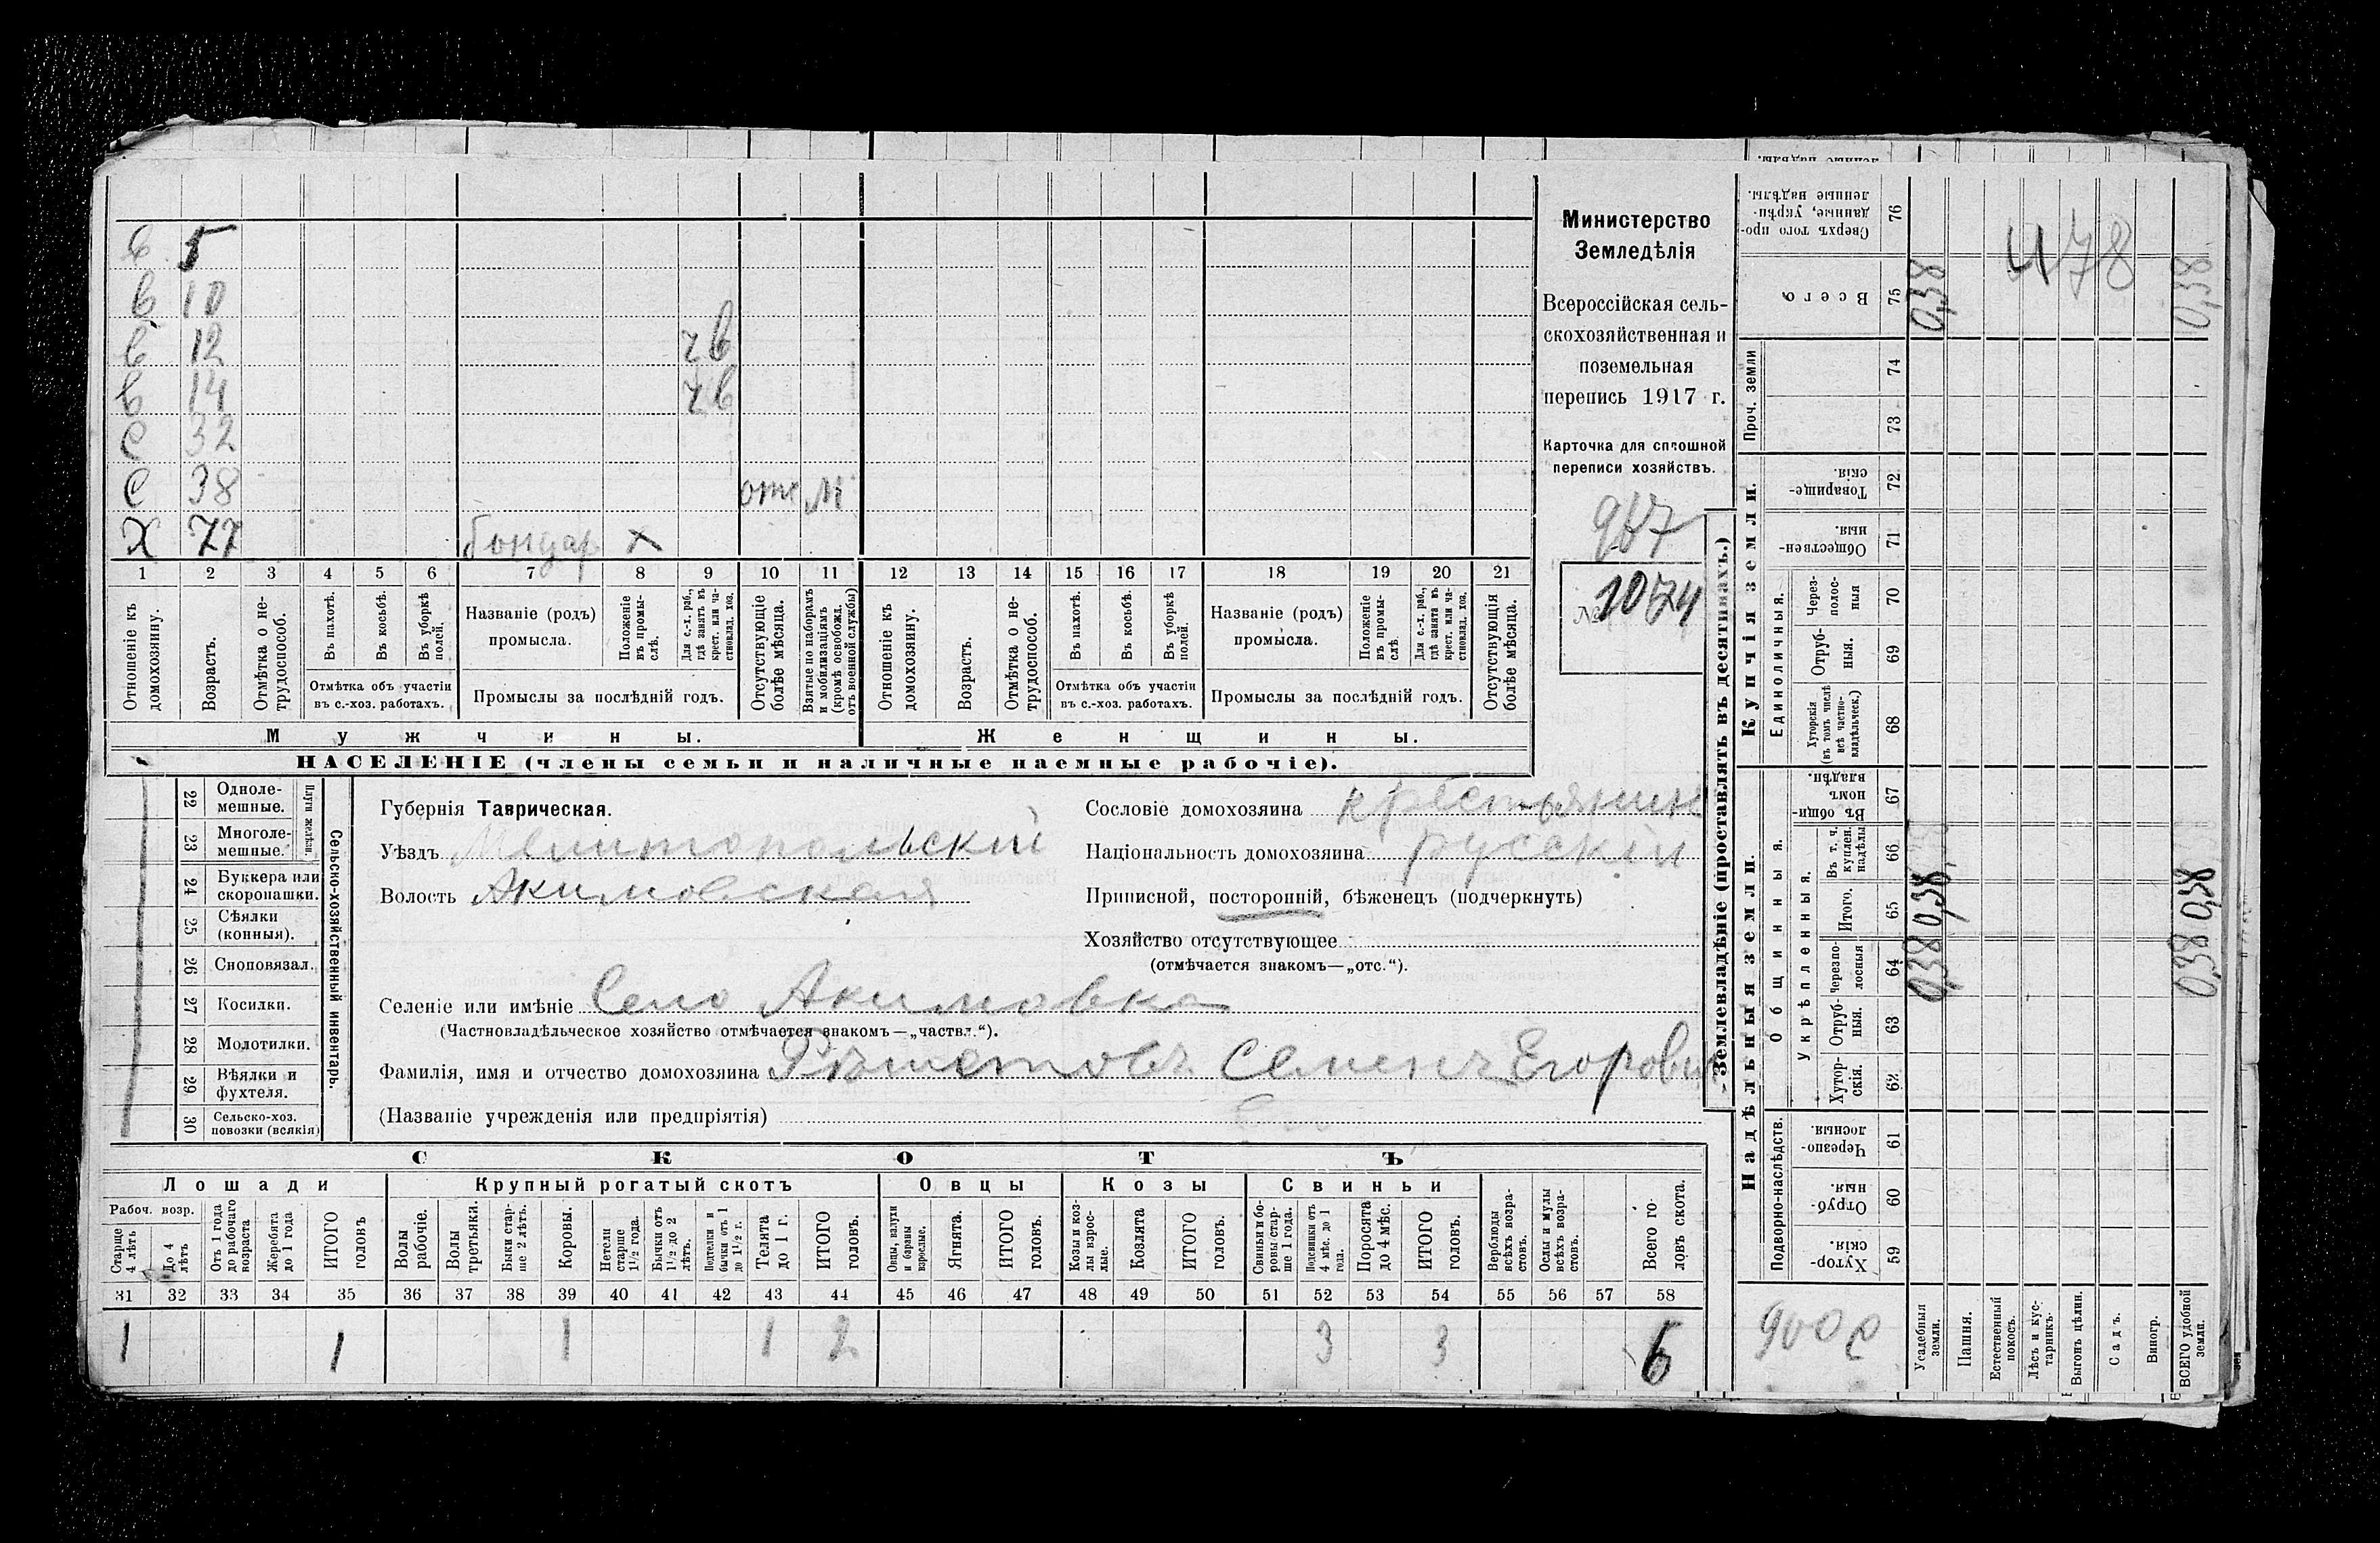 в 5
в 10
в 12 чв
в 14 чв
с 32
с 38 отс м
х 77 бондар х
1 2 3 4 5 6 7 8 9 10 11 12 13 14 15 16 17 18 19 20 21
Отношеніе къ домохозяину.
Возрастъ.
Отмѣтка о нетрудоспособ.
Въ пахотѣ.
Въ косьбѣ.
Въ уборкѣ полей.
Отмѣтка объ участіи
въ с.-хоз. работахъ.
Названіе (родъ)
промысла.
Положеніе въ промыслѣ.
Для с.-х. раб., гдѣ занятъ въ крест. или частновлад. хоз.
Промыслы за послѣдній годъ.
Отсутствующіе болѣе мѣсяца.
Взятые по наборамъ и мобилизаціямъ (кромѣ освобожд. отъ военной службы)
Отношеніе къ домохозяину.
Возрастъ.
Отмѣтка о нетрудоспособ.
Въ пахотѣ.
Въ косьбѣ.
Въ уборкѣ полей.
Отмѣтка объ участіи
въ с.-хоз. работахъ.
Названіе (родъ)
промысла.
Положеніе въ промыслѣ.
Для с.-х. раб., гдѣ занята въ крест. или частновлад. хоз.
Промыслы за послѣдній годъ.
Отсутствующія болѣе мѣсяца.
Мужчины.
Женщины.
НАСЕЛЕНІЕ (члены семьи и наличные наемные рабочіе).
Министерство
Земледѣлія
Всероссійская сель-
скохозяйственная и
поземельная
перепись 1917 г.
Карточка для сплошной
переписи хозяйствъ.
967
№ 1074
22 Одноле-
мешные.
23 Многоле-
мешные.
Плуги желѣзн.
24 Буккера или
скоропашки.
25 Сѣялки
(конныя).
26 Сноповязал.
27 Косилки.
28 Молотилки.
29 Вѣялки и
фухтеля.
30 Сельско-хоз.
повозки (всякія)
Сельско-хозяйственный инвентарь.
Губернія Таврическая.
Уѣздъ Мелитопольскій
Волость Акимовская
Сословіе домохозяина крестьянин
Національность домохозяина русскій
Приписной, посторонній, бѣженецъ (подчеркнуть)
Хозяйство отсутствующее
(отмѣчается знакомъ—„отс.“).
Селеніе или имѣніе Село Акимовка
(Частновладѣльческое хозяйство отмѣчается знакомъ—„частвл.“).
Фамилія, имя и отчество домохозяина Рѣшетовъ Семенъ Егорович
(Названіе учрежденія или предпріятія)
СКОТЪ
Лошади Крупный рогатый скотъ Овцы Козы Свиньи
Рабоч. возр.
Старше 4 лѣтъ
До 4 лѣтъ
Отъ 1 года до рабочаго возраста
Жеребята до 1 года
ИТОГО головъ
Волы рабочіе.
Волы третьяки.
Быки старше 2 лѣтъ.
Коровы.
Нетели старше 1½ года.
Бычки отъ 1½ до 2 лѣтъ.
Подтелки и бычки отъ 1 до 1½ г.
Телята до 1 г.
ИТОГО головъ.
Овцы, валухи и бараны взрослые.
Ягнята.
ИТОГО головъ.
Козы и козлы взрослые.
Козлята
ИТОГО головъ.
Свиньи и боровы старше 1 года.
Подсвинки отъ 4 мѣс. до 1 года.
Поросята до 4 мѣс.
ИТОГО головъ.
Верблюды всѣхъ возрастовъ.
Ослы и мулы всѣхъ возрастовъ.
Всего головъ скота.
31 32 33 34 35 36 37 38 39 40 41 42 43 44 45 46 47 48 49 50 51 52 53 54 55 56 57 58
1 1 1 1 2 3 3 6
Землевладѣніе (проставлять въ десятинахъ.)
Надѣльныя земли.
Купчія земли.
Проч. земли
Подворно-наслѣдств.
Общинныя.
Укрѣпленныя.
Единоличныя.
Сверхъ того проданные, укрѣпленные надѣлы. 76
Всего 75
74
73
Товарищескія. 72
Общественныя. 71
Черезполосныя 70
Отрубныя. 69
Хуторскія (въ томъ числѣ всѣ частновладѣльческ.) 68
Въ общинномъ владѣн. 67
Въ т. ч. куплен. надѣлы 66
Итого. 65
Черезполосныя 64
Отрубныя. 63
Хуторскія. 62
Черезполосныя. 61
Отрубныя. 60
Хуторскія. 59
478
0,38 0,38
0,38 0,38
0,38 0,38
900 с
Усадебныя земли.
Пашня.
Естественный покосъ.
Лѣсъ и кустарникъ.
Выгонъ цѣлин.
Садъ.
Виногр.
ВСЕГО удобной земли.